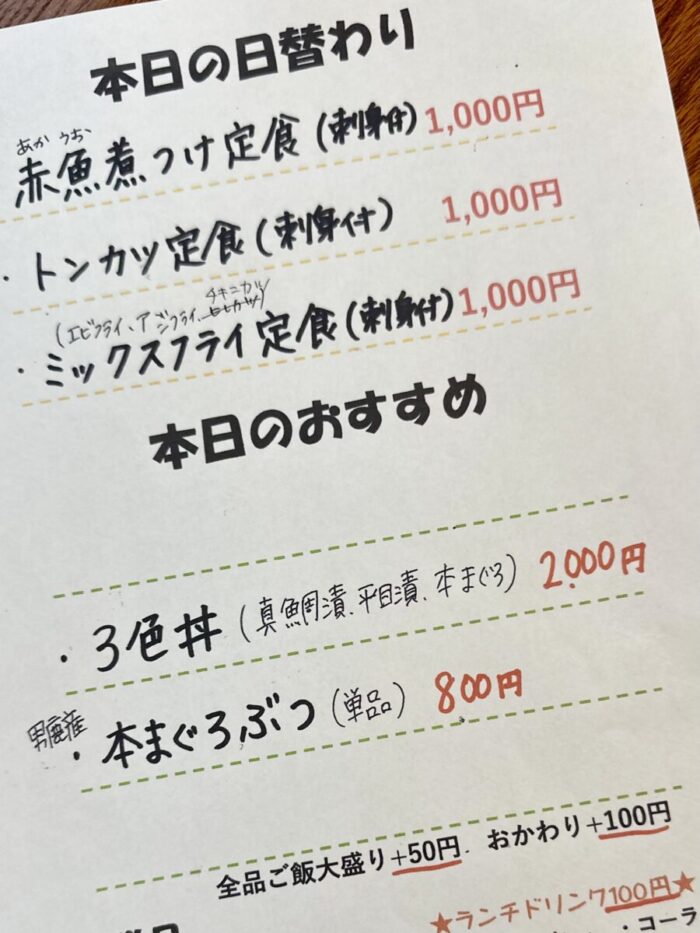 本日の日替わり
あかうお
赤魚煮つけ定食(刺身付)1,000円
・トンカツ定食(刺身付) 1,000円
チキニカツ
(エビフライ、アジフライ、ヒレカツ)
・ミックスフライ定食(刺身付)1,000円
本日のおすすめ
・3色丼(真鯛漬、平目漬、本まぐろ) 2,000円
男鹿産
・本まぐろぶつ(単品) 800円
全品ご飯大盛り+50円 おかわり+100円
★ランチドリンク100円★
・コーラ